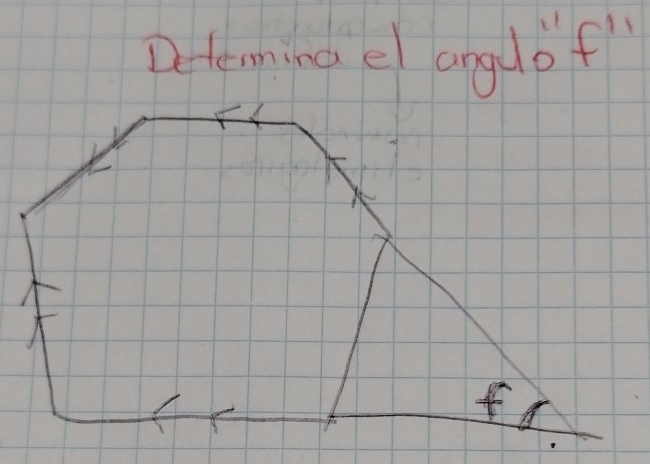 Determina el angulo "f"
f